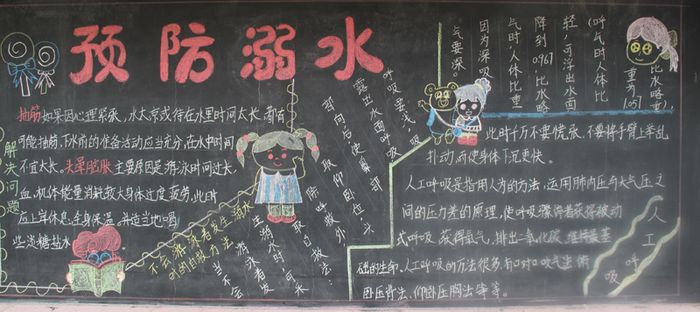 预防溺水
抽筋 如果因心理紧张,水太凉或待在水里时间太长,都有
可能抽筋,下水前的准备活动应当充分,在水中时间
不宜太长。头晕脑胀 主要原因是游泳时间过长
血,机体能量消耗较大身体过度疲劳,此时
应上岸休息,全身保温,并适当喝
些淡糖盐水
解决问题
不会游泳者发生溺水
时的自救方法
当不会
游泳者发
生溺水时,可采
取自救法:
除呼救外,
取仰卧位,头
部向后,使鼻部
露出水面呼吸。
呼吸要浅,吸
气要深。
因为深吸
气时,人体比重
降到0.967,比水略
轻,可浮出水面
(呼气时人体比
重为1.057
比水略重)
此时千万不要慌张,不要将手臂上举乱
扑动,而使身体下沉更快。
人工呼吸是指用人为的方法,运用肺内压与大气压之
间的压力差的原理,使呼吸骤停者获得被动
式呼吸,获得氧气,排出二氧化碳,维持最基
础的生命。人工呼吸的方法很多,有口对口吹气法、俯
卧压背法、仰卧压胸法等等。
人工呼吸